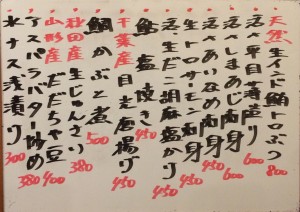 天然生インド鮪トロぶつ 800
活〆平目薄造り 600
活〆しまあじ刺身 600
活〆あいなめ刺身 450
生トロサーモン刺身 450
活生だこ胡麻塩かけ 450
鮎塩焼き 450
千葉産 目光唐揚げ 450
鯛かぶと煮 500
秋田産 生じゅんさい 380
山形産 だだちゃ豆 400
アスパラバター炒め 380
水ナス浅漬け 300